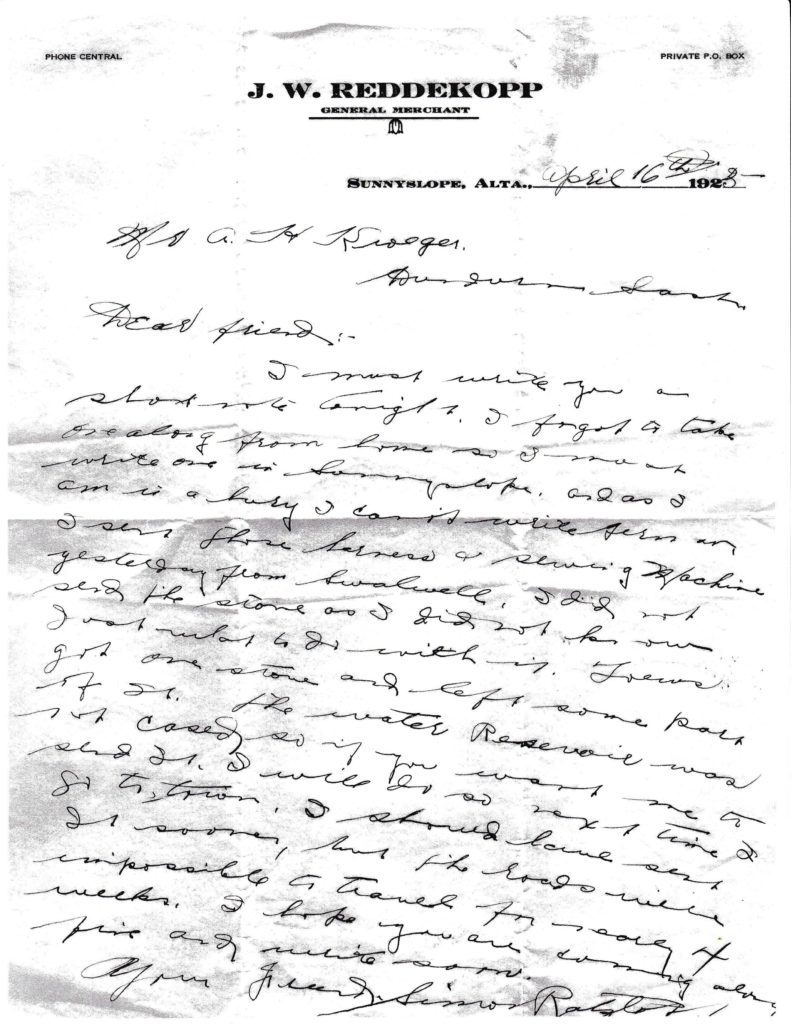 PHONE CENTRAL
PRIVATE P.O. BOX
J. W. REDDEKOPP
GENERAL MERCHANT
SUNNYSLOPE, ALTA., April 16th 1923
A. H Kroeger.
Dundurn, Sask,
Dear friend:-
I must write you a
short note tonight. I forgot to take
one along from home so I must
write one in Sunnyslope. and as I
am in a hury I can't write
I sent those harness & sewing Machine
yesterday from Swalwell. I did not
send the stone as I did not know
Just what to do with it. Toews
got one stone and left some part
of It. The water Resevoir was
not cased, so if you want me to
send It. I will do so next time I
go to town. I should have sent
It sooner, but the roads were
impossible to travel for nearly 4
weeks. I hope you are coming along
fine and write soon.
Your friend, Simon